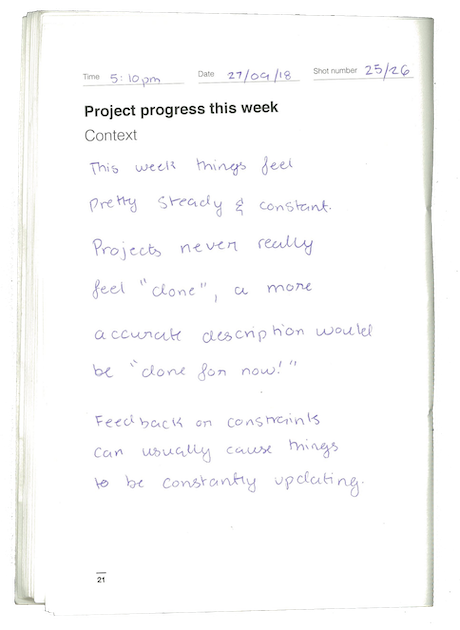 Time 5:10pm Date 27/09/18 Shot number 25/26
Project progress this week
Context
This week things feel
pretty steady & constant.
Projects never really
feel "done", a more
accurate description would
be "done for now!"
Feedback or constraints
can usually cause things
to be constantly updating.
21